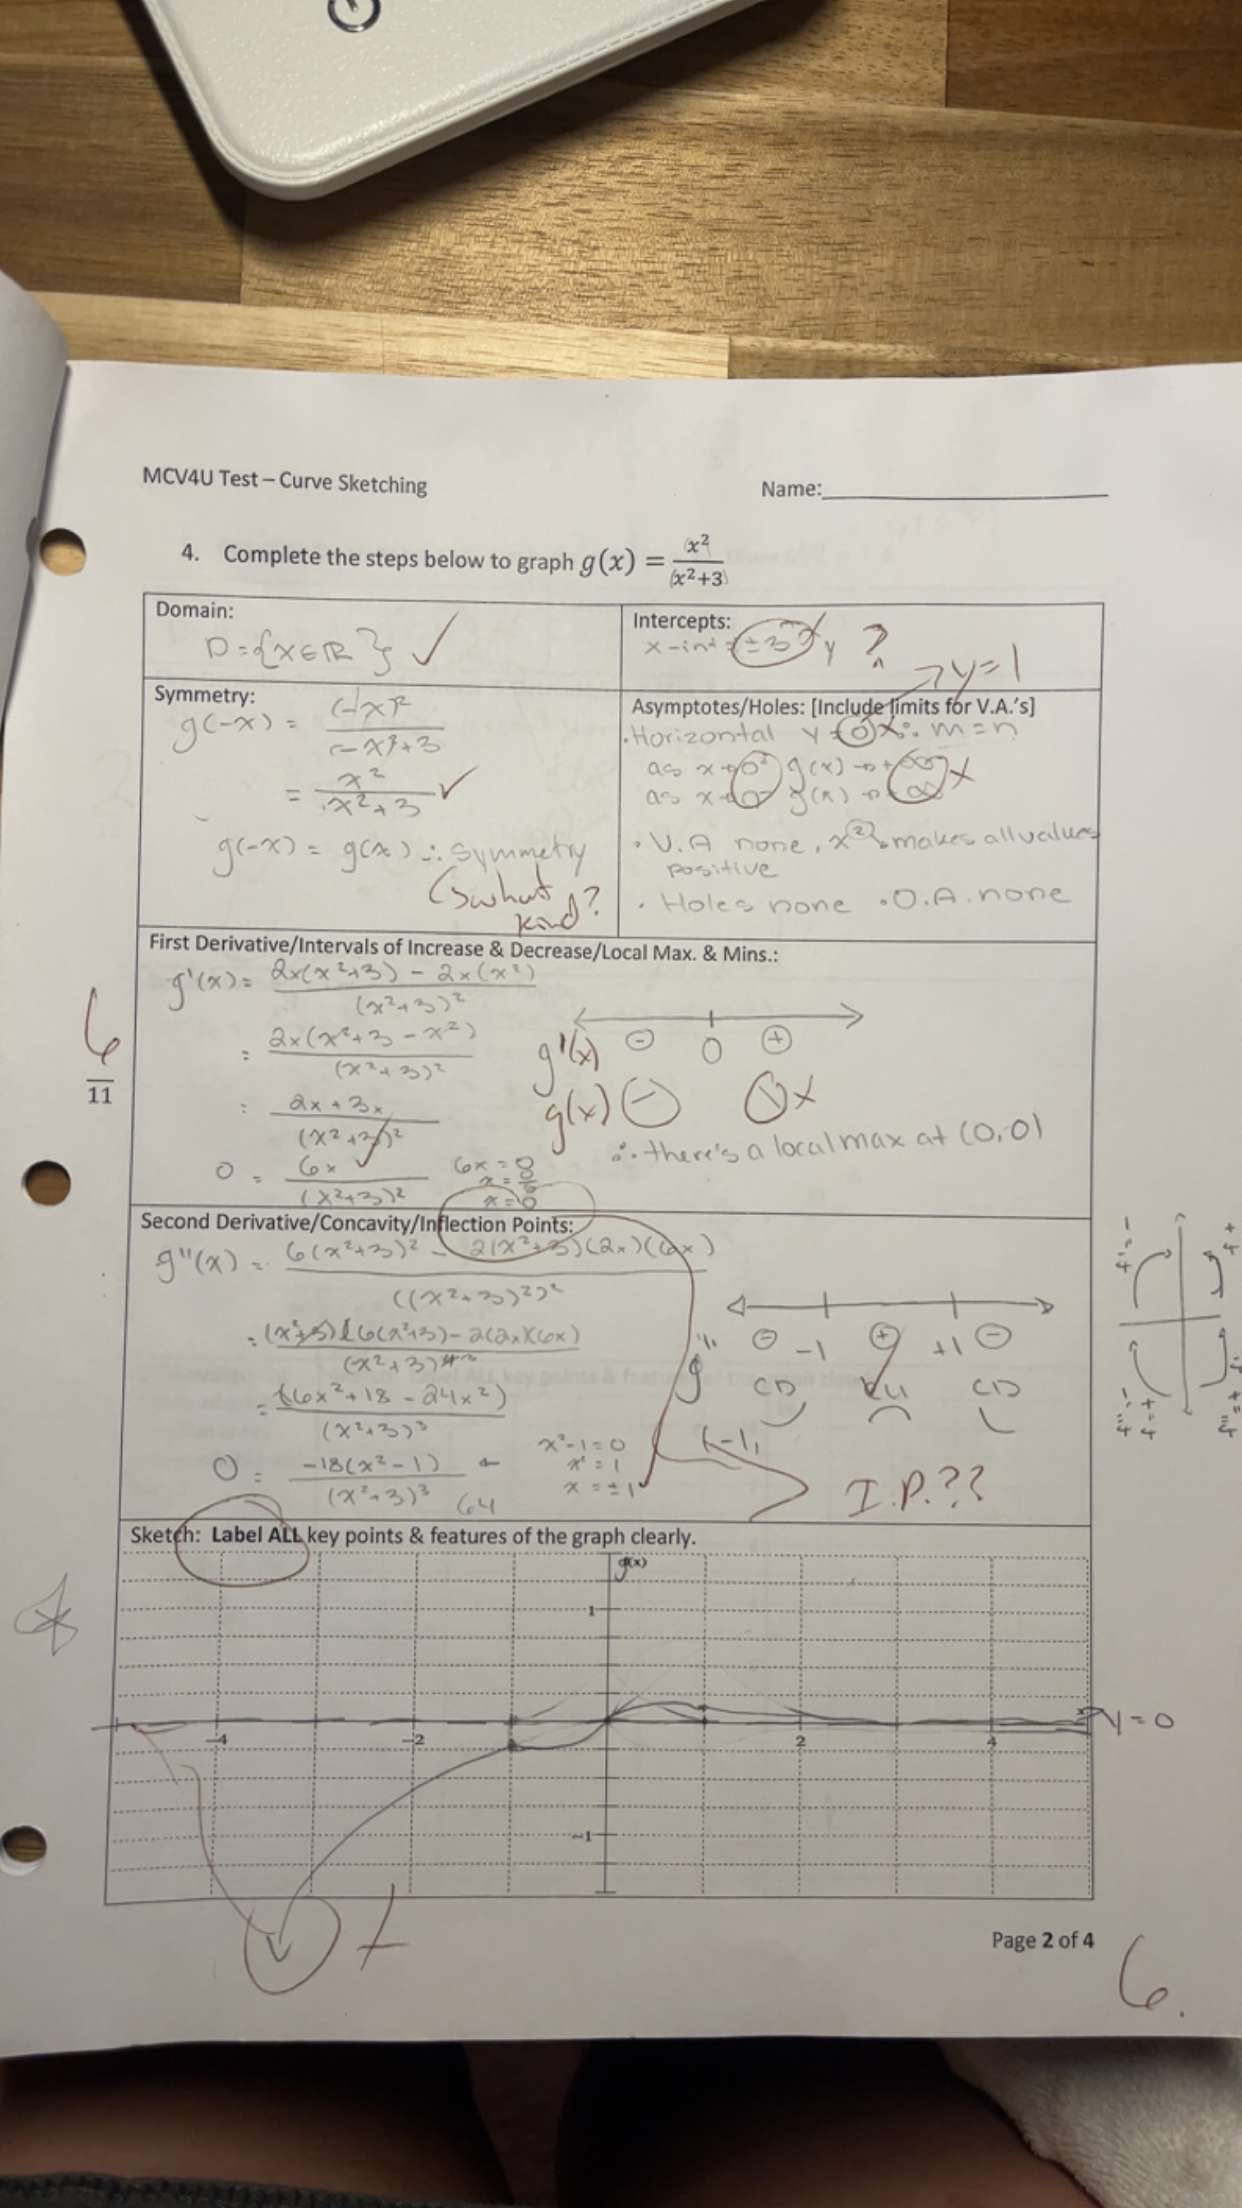 MCV4U Test – Curve Sketching
Name:
4. Complete the steps below to graph g(x) = x²/(x²+3)
Domain:
D = {x∈ℝ} ✓
Intercepts:
x-int = ±3 y ?
→ y=1
Symmetry:
g(-x) = (-x)²/(-x)²+3
= x²/x²+3 ✓
g(-x) = g(x) ∴ symmetry
what
kind?
Asymptotes/Holes: [Include limits for V.A.'s]
·Horizontal y=0 x ∵ m=n
as x→0⁺ g(x)→+∞ x
as x→0⁻ g(x)→
· V.A none, x² makes all values
positive
· Holes none ·O.A. none
First Derivative/Intervals of Increase & Decrease/Local Max. & Mins.:
g'(x) = 2x(x²+3) - 2x(x²)/(x²+3)²
= 2x(x²+3-x²)/(x²+3)²
= 2x+3x/(x²+3)²
0 = 6x/(x²+3)²
6x = 0
x = 0/6
x = 0
g'(x) ⊖ 0 ⊕
g(x)
∴ there's a local max at (0,0)
6/11
Second Derivative/Concavity/Inflection Points:
g''(x) = 6(x²+3)² - 2(x²+3)(2x)(6x)/((x²+3)²)²
= (x²+3)[6(x²+3) - 2(2x)(6x)/(x²+3)⁴
= (6x²+18-24x²)/(x²+3)³
0 = -18(x²-1)/(x²+3)³
64
x²-1=0
x²=1
x=±1
g'' ⊖ -1 ⊕ +1 ⊖
CD CU CD
(-1,
I.P.??
Sketch: Label ALL key points & features of the graph clearly.
g(x)
1
-4 -2 2 4
x
y=0
-1
Page 2 of 4
6.